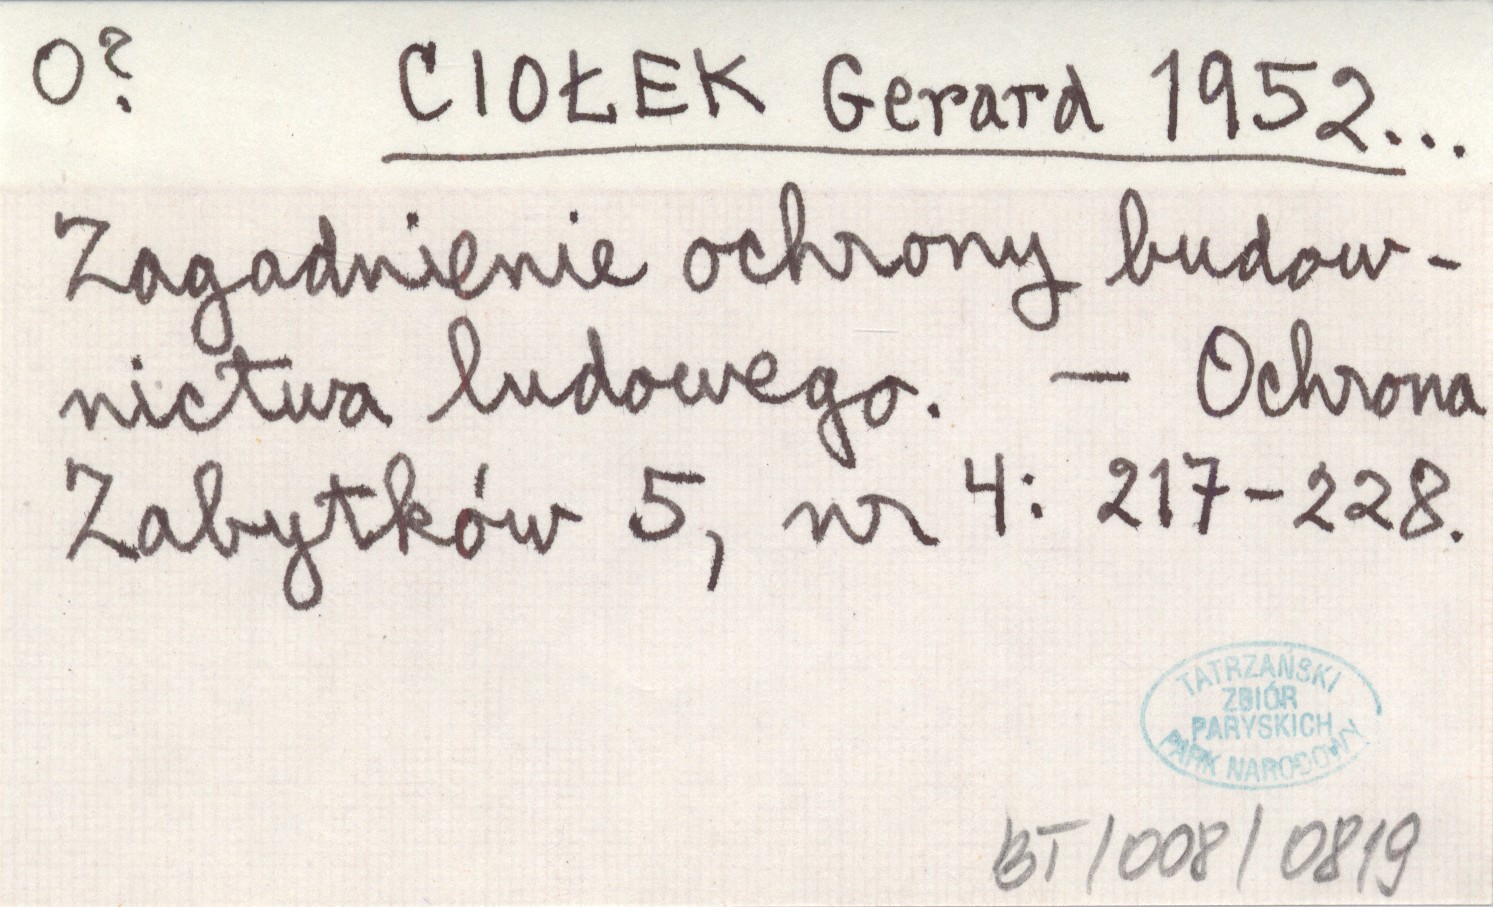 O? CIOŁEK Gerard 1952...
Zagadnienie ochrony budow-
nictwa ludowego. — Ochrona
Zabytków 5, nr 4: 217-228.
TATRZAŃSKI
ZBIÓR
PARYSKICH
PARK NARODOWY
BT/008/0819